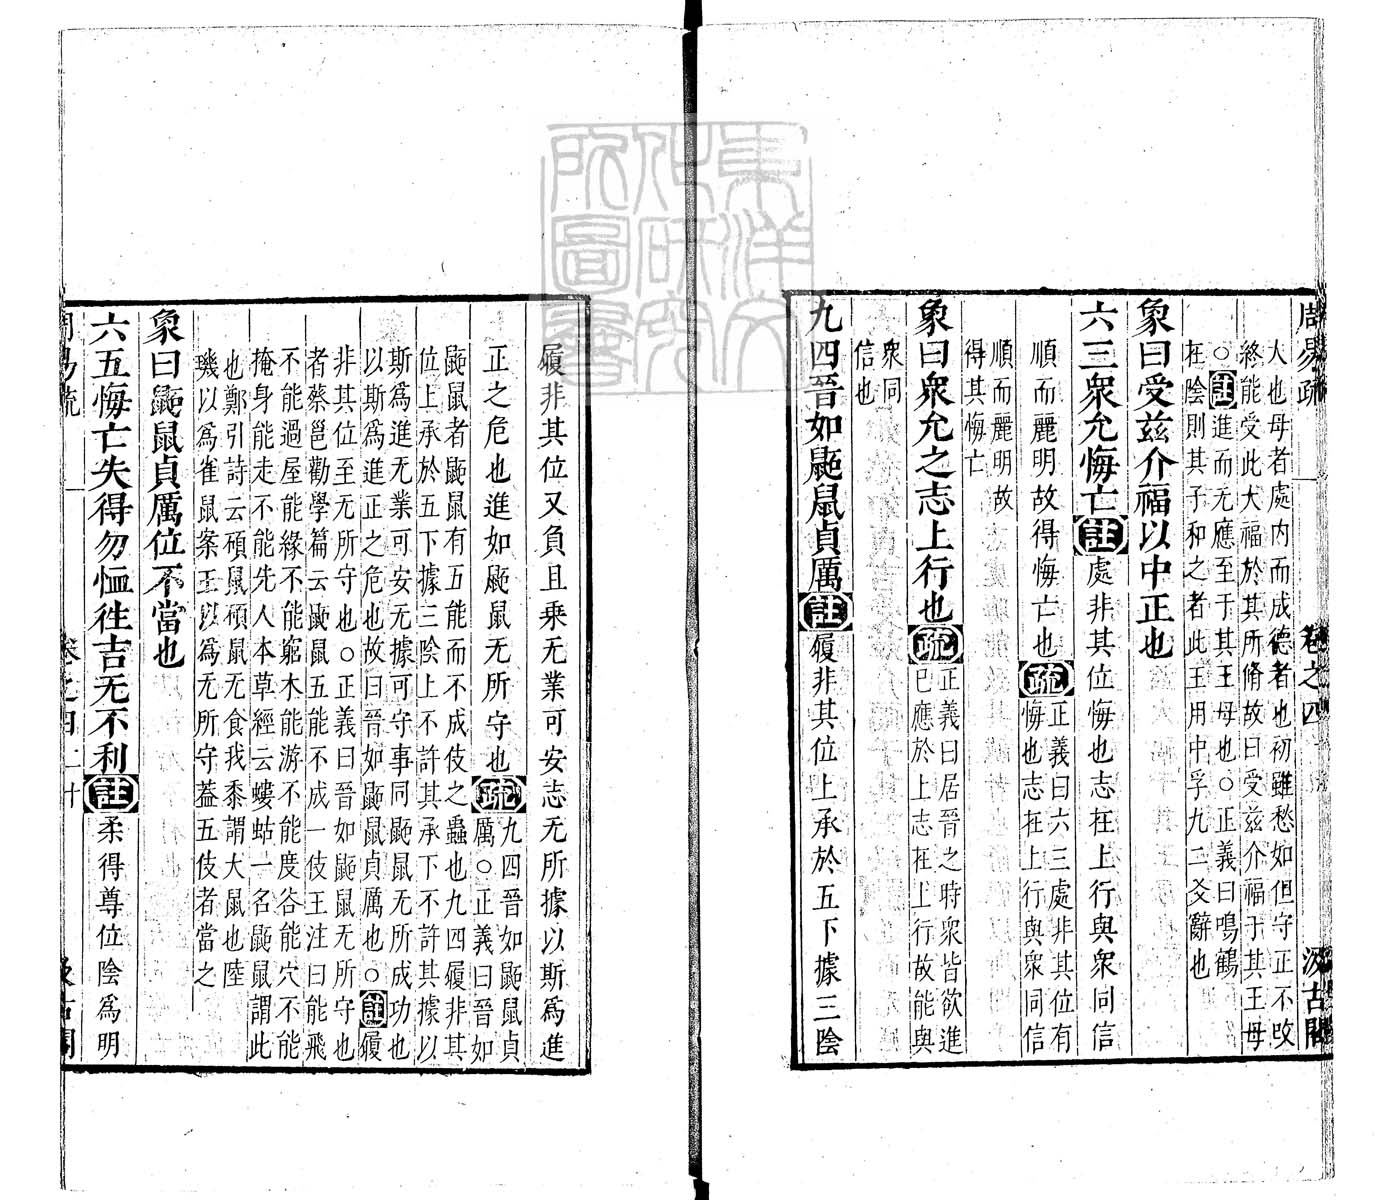 周易疏 卷之四 汲古閣
大也母者處内而成德者也初雖愁如但守正不改
終能受此大福於其所脩故曰受兹介福于其王母
○註進而无應至于其王母也○正義曰鳴鶴
在陰則其子和之者此王用中孚九二爻辭也
象曰受兹介福以中正也
六三衆允悔亡註處非其位悔也志在上行與衆同信
順而麗明故得悔亡也疏正義曰六三處非其位有
悔也志在上行與衆同信
順而麗明故
得其悔亡
象曰衆允之志上行也疏正義曰居晉之時衆皆欲進
已應於上志在上行故能與
衆同
信也
九四晉如鼫鼠貞厲註履非其位上承於五下據三陰
履非其位又負且乘无業可安志无所據以斯爲進
正之危也進如鼫鼠无所守也疏九四晉如鼫鼠貞
厲○正義曰晉如
鼫鼠者鼫鼠有五能而不成伎之蟲也九四履非其
位上承於五下據三陰上不許其承下不許其據以
斯爲進无業可安无據可守事同鼫鼠无所成功也
以斯爲進正之危也故曰晉如鼫鼠貞厲也○註履
非其位至无所守也○正義曰晉如鼫鼠无所守也
者蔡邕勸學篇云鼫鼠五能不成一伎王注曰能飛
不能過屋能緣不能窮木能游不能度谷能穴不能
掩身能走不能先人本草經云螻蛄一名鼫鼠謂此
也鄭引詩云碩鼠碩鼠无食我黍謂大鼠也陸
璣以爲雀鼠案王以爲无所守蓋五伎者當之
象曰鼫鼠貞厲位不當也
六五悔亡失得勿恤往吉无不利註柔得尊位陰爲明
周易疏 卷之四 二十 汲古閣